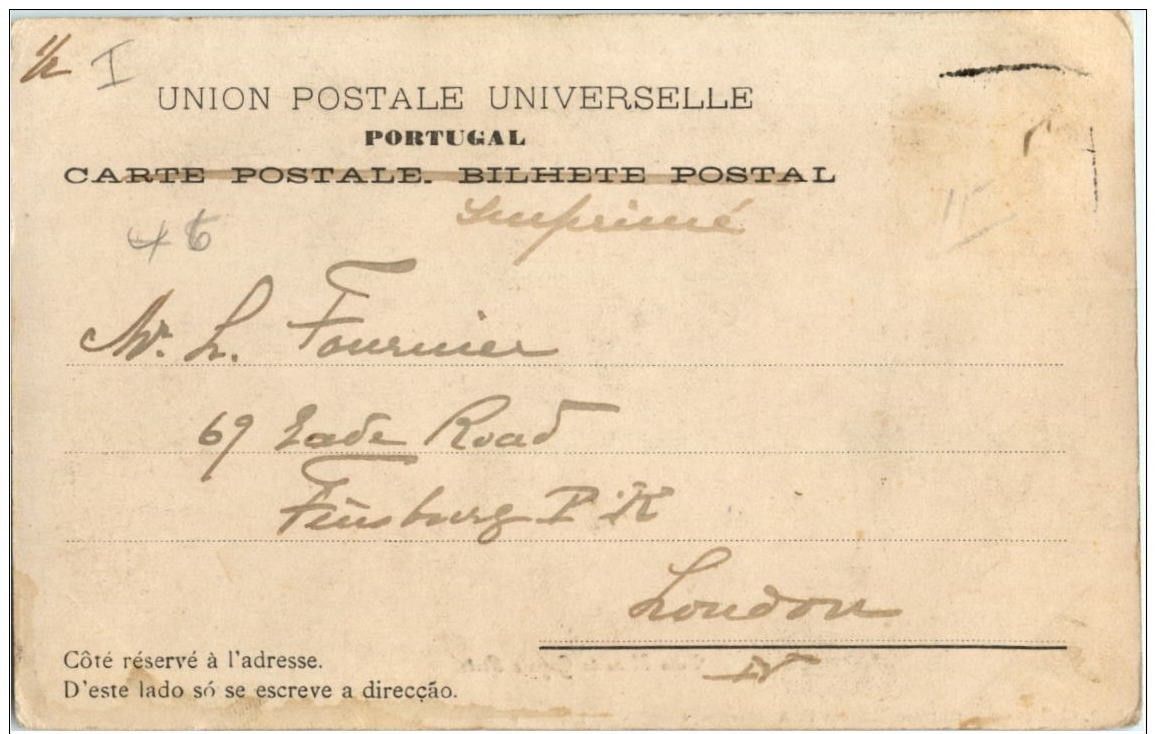 1/2 I
UNION POSTALE UNIVERSELLE
PORTUGAL
CARTE POSTALE. BILHETE POSTAL
Imprimé
46
Mr. L. Fournier
69 Eade Road
Finsbury P.K
London
N
Côté réservé à l'adresse.
D'este lado só se escreve a direcção.